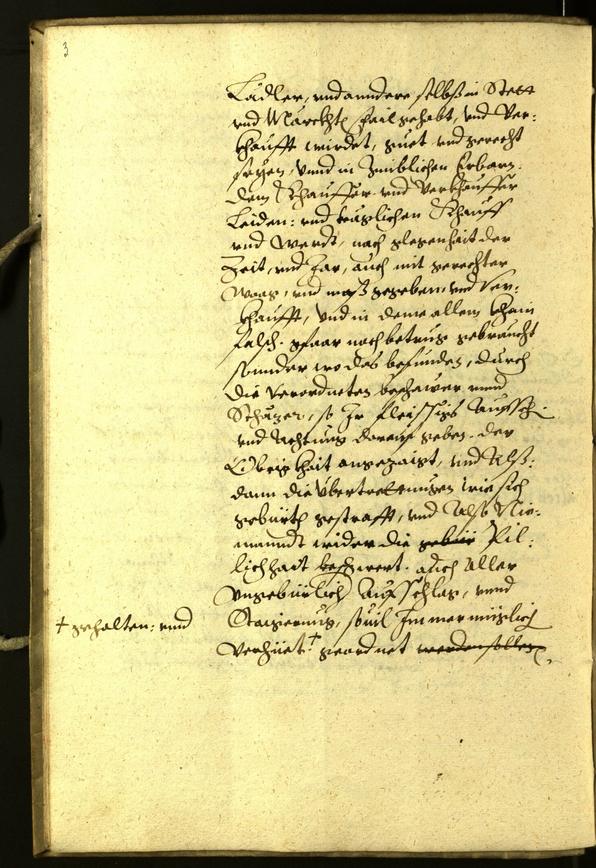 3
Ladler, und anndere selbst in Stett
und Märckht fail gehabt, und ver:
khaufft wirdet, guet und gerecht
seyen, unnd in Zimblichen Erbarn:
dem Khauffer und Verkhauffer
Leiden: und träglichen Khauff
und Werdt, nach glegenheit der
Zeit, und Jar, auch mit gerechter
Waag, und maß gegeben, und ver:
khaufft, und in deme allem khain
falsch, gfaar noch betrug gebraucht
sonnder wo das befunden, durch
die verordneten beschawer unnd
Schäzer, so Ir fleissigs
und Achtung darauf geben, der
Obrigkhait angezaigt, und Alß:
dann die übertrettungen wie sich
gebürth gestrafft, und Also Nie:
manndt wider die gebür Pil:
lichhait beschwert, auch Aller
ungebürlich Aufschlag, unnd
Staigerung, sovil Immer müglich
+ gehalten: und
verhüet + geordnet werden sollen